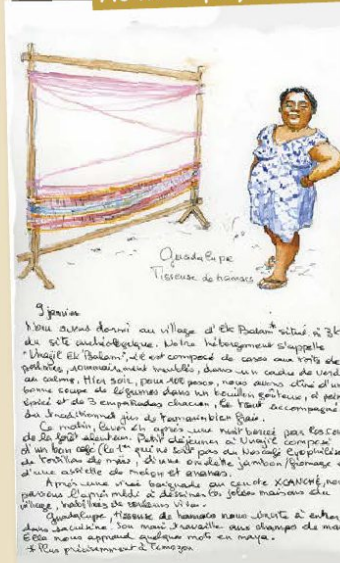 Guadalupe
Tisseuse de hamacs
9 janvier
Nous avons dormi au village d'Ek Balam* situé à 3k
du site archéologique. Notre hébergement s'appelle
"Unajil Ek Balam", il est composé de casas aux toits de
, sommairement meublés, dans un cadre de verd
au calme. Hier soir, pour 100 pesos, nous avons dîné d'un
bonne soupe de légumes dans un bouillon goûteux, à pein
épicé et de 3 empanadas chacun, le tout accompagné
du traditionnel jus de tamarin bien frais.
Ce matin, lever en après une nuit bercée par les sons
de la forêt alentour. Petit déjeuner à Unajil composé
d'un bon café (le 1er qui ne soit pas du Nescafé lyophilisé
de tortillas de maïs, d'une omelette jambon/fromage e
d'une assiette de melon et ananas.
Après une vraie baignade au cenote XCANCHÉ, nous
passons l'après midi à dessiner les jolies maisons du
village, habillées de couleurs vives.
Guadalupe tisseuse de hamacs nous invite à entrer
dans sa cuisine. Son mari travaille aux champs de maï
Elle nous apprend quelques mots en maya.
* Plus précisemment à Temozon